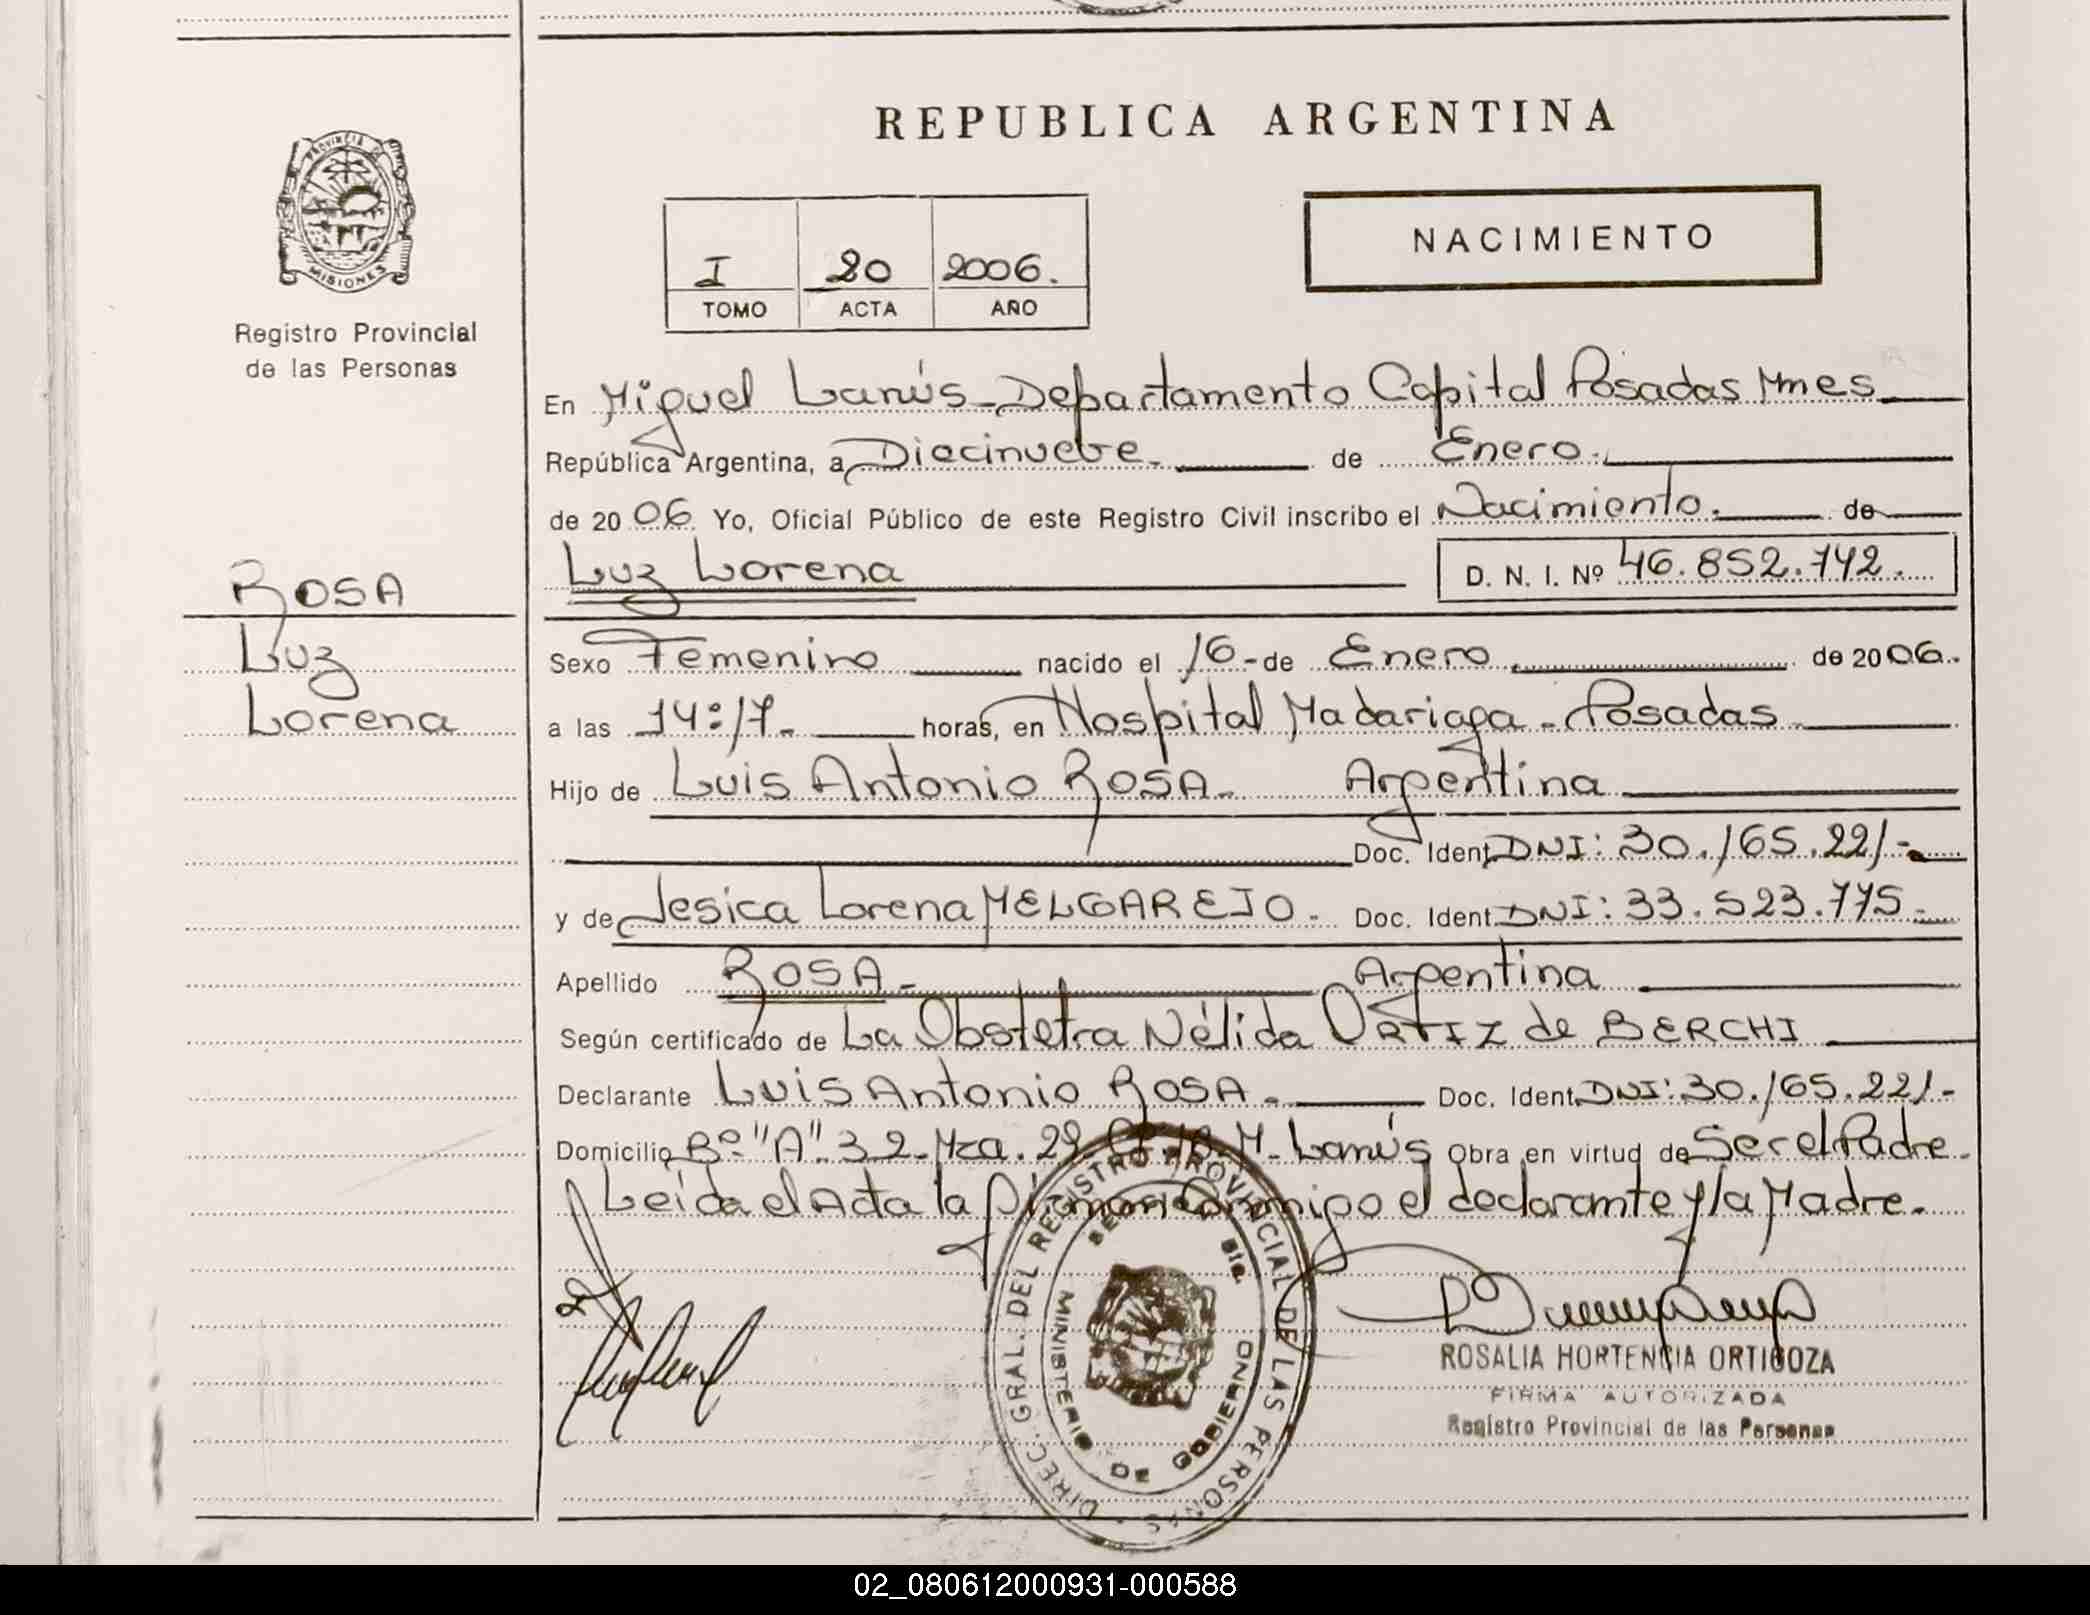 REPUBLICA ARGENTINA
PROVINCIA DE
MISIONES
Registro Provincial
de las Personas
NACIMIENTO
I 20 2006.
TOMO ACTA AÑO
En Miguel Lanús - Departamento Capital Posadas Mnes
República Argentina, a Diecinueve. de Enero.
de 2006. Yo, Oficial Público de este Registro Civil inscribo el Nacimiento. de
Luz Lorena D. N. I. Nº 46.852.742.
ROSA
Luz
Lorena
Sexo Femenino nacido el 16 - de Enero de 2006.
a las 14:17. horas, en Hospital Madariaga - Posadas
Hijo de Luis Antonio ROSA - Argentina
Doc. Ident. DNI: 30.165.221 -
y de Jesica Lorena MELGAREJO. Doc. Ident. DNI: 33.523.775 -
Apellido ROSA - Argentina
Según certificado de La Obstetra Nélida ORTIZ de BERCHI
Declarante Luis Antonio ROSA - Doc. Ident. DNI: 30.165.221 -
Domicilio Bº "A" 32 - Mza. 29 M. Lanús Obra en virtud de Ser el Padre -
Leída el Acta la firman Conmigo el declarante y la Madre.
DIREC. GRAL. DEL REGISTRO PROVINCIAL DE LAS PERSONAS
MINISTERIO DE GOBIERNO
ROSALIA HORTENCIA ORTIGOZA
FIRMA AUTORIZADA
Registro Provincial de las Personas
02_080612000931-000588